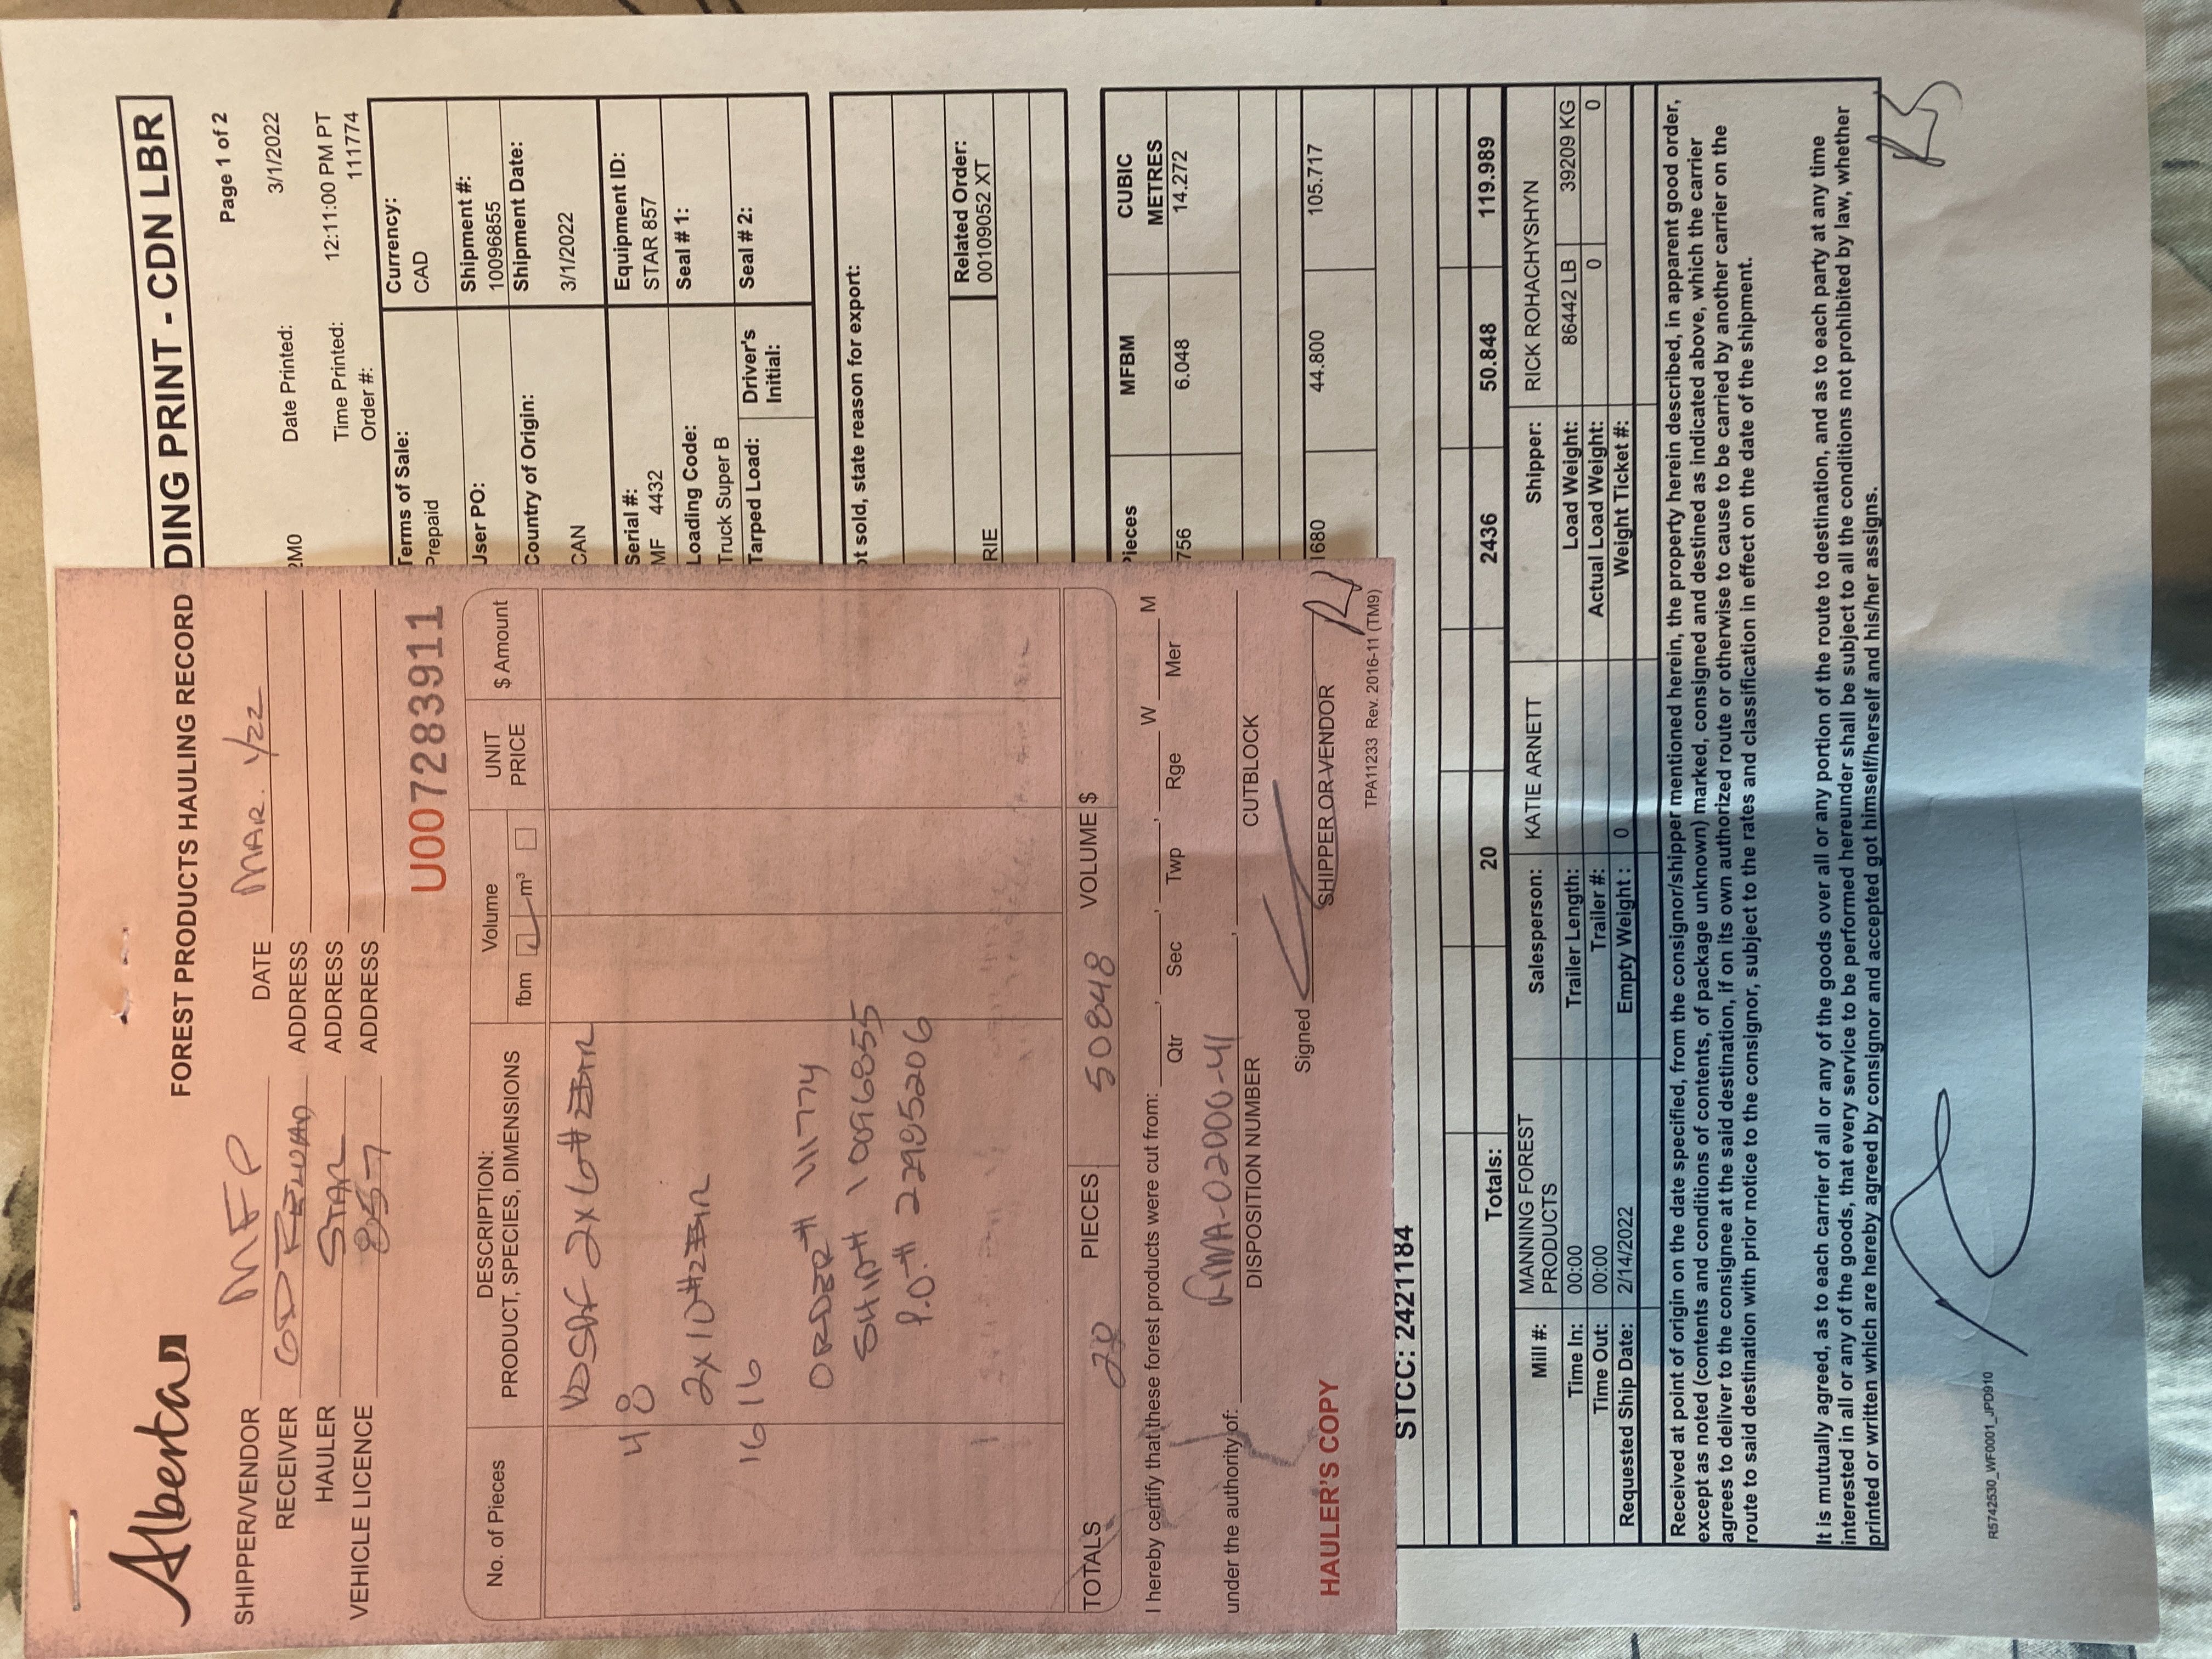 Alberta
FOREST PRODUCTS HAULING RECORD
SHIPPER/VENDOR MFP
DATE MAR. 1/22
RECEIVER GD RELOAD ADDRESS
HAULER STAR ADDRESS
VEHICLE LICENCE 857 ADDRESS
U007283911
No. of Pieces
DESCRIPTION:
PRODUCT, SPECIES, DIMENSIONS
Volume
fbm m³
UNIT
PRICE
$ Amount
KDSPF 2x6 #2&BTR
4 8
2x10 #2&BTR
16 16
ORDER# 111774
SHIP# 10096855
P.O.# 22985206
TOTALS 20 PIECES 50848 VOLUME $
I hereby certify that these forest products were cut from: , , , W M
Qtr Sec Twp Rge Mer
under the authority of: FMA-02000-41 ,
DISPOSITION NUMBER CUTBLOCK
Signed
SHIPPER OR VENDOR
HAULER'S COPY
TPA11233 Rev. 2016-11 (TM9)
DING PRINT - CDN LBR
Page 1 of 2
2M0 Date Printed: 3/1/2022
Time Printed: 12:11:00 PM PT
Order #: 111774
Terms of Sale: Currency:
Prepaid CAD
User PO: Shipment #:
10096855
Country of Origin: Shipment Date:
CAN 3/1/2022
Serial #: Equipment ID:
MF 4432 STAR 857
Loading Code: Seal # 1:
Truck Super B
Tarped Load: Driver's Initial: Seal # 2:
ot sold, state reason for export:
RIE
Related Order:
00109052 XT
Pieces MFBM CUBIC METRES
756 6.048 14.272
1680 44.800 105.717
STCC: 2421184
Totals: 20 2436 50.848 119.989
Mill #: MANNING FOREST PRODUCTS Salesperson: KATIE ARNETT Shipper: RICK ROHACHYSHYN
Time In: 00:00 Trailer Length: Load Weight: 86442 LB 39209 KG
Time Out: 00:00 Trailer #: Actual Load Weight: 0 0
Requested Ship Date: 2/14/2022 Empty Weight : 0 Weight Ticket #:
Received at point of origin on the date specified, from the consignor/shipper mentioned herein, the property herein described, in apparent good order,
except as noted (contents and conditions of contents, of package unknown) marked, consigned and destined as indicated above, which the carrier
agrees to deliver to the consignee at the said destination, if on its own authorized route or otherwise to cause to be carried by another carrier on the
route to said destination with prior notice to the consignor, subject to the rates and classification in effect on the date of the shipment.
It is mutually agreed, as to each carrier of all or any of the goods over all or any portion of the route to destination, and as to each party at any time
interested in all or any of the goods, that every service to be performed hereunder shall be subject to all the conditions not prohibited by law, whether
printed or written which are hereby agreed by consignor and accepted got himself/herself and his/her assigns.
R5742530_WF0001_JPD910